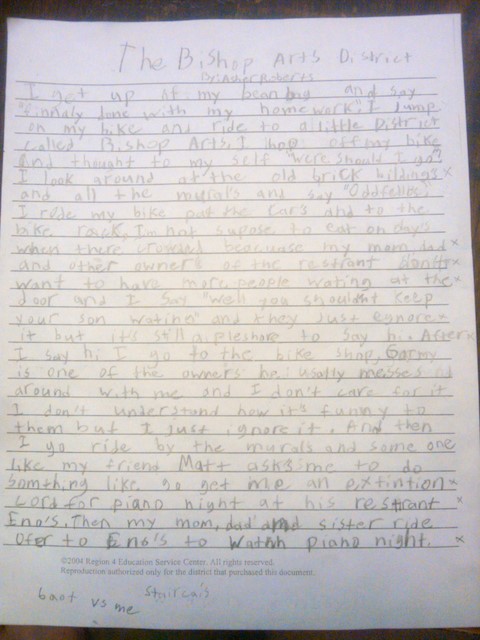 The Bishop Arts District
By: Asher Roberts
I get up of my bean bag and say
"finnaly done with my homework". I Jump
on my bike and ride to a little District
called Bishop Arts. I hop off my bike
and thought to my self "were should I go?"
I look around at the old brick bildings x
and all the mural's and say "Oddfellos".
I ride my bike past the car's and to the
bike rack, I'm not supose to eat on day's
when there crouded beacuase my mom, dad x
and other owner's of the restrant don't x
want to have more people wating at the x
door and I say "Well you shouldnt keep
your son wating" and they Just egnore x
it but it's still a pleshare to say hi. After x
I say hi I go to the bike shop,
is one of the owners he usally messes
around with me and I don't care for it
I don't understand how it's funny to
them but I just ignore it. And then
I go ride by the murals and some one
like my friend Matt asks me to do
something like go get me an extintion x
cord for piano night at his restrant x
Eno's. Then my mom, dad and sister ride
Ofer to Eno's to watch piano night. x
©2004 Region 4 Education Service Center. All rights reserved.
Reproduction authorized only for the district that purchased this document.
vs me